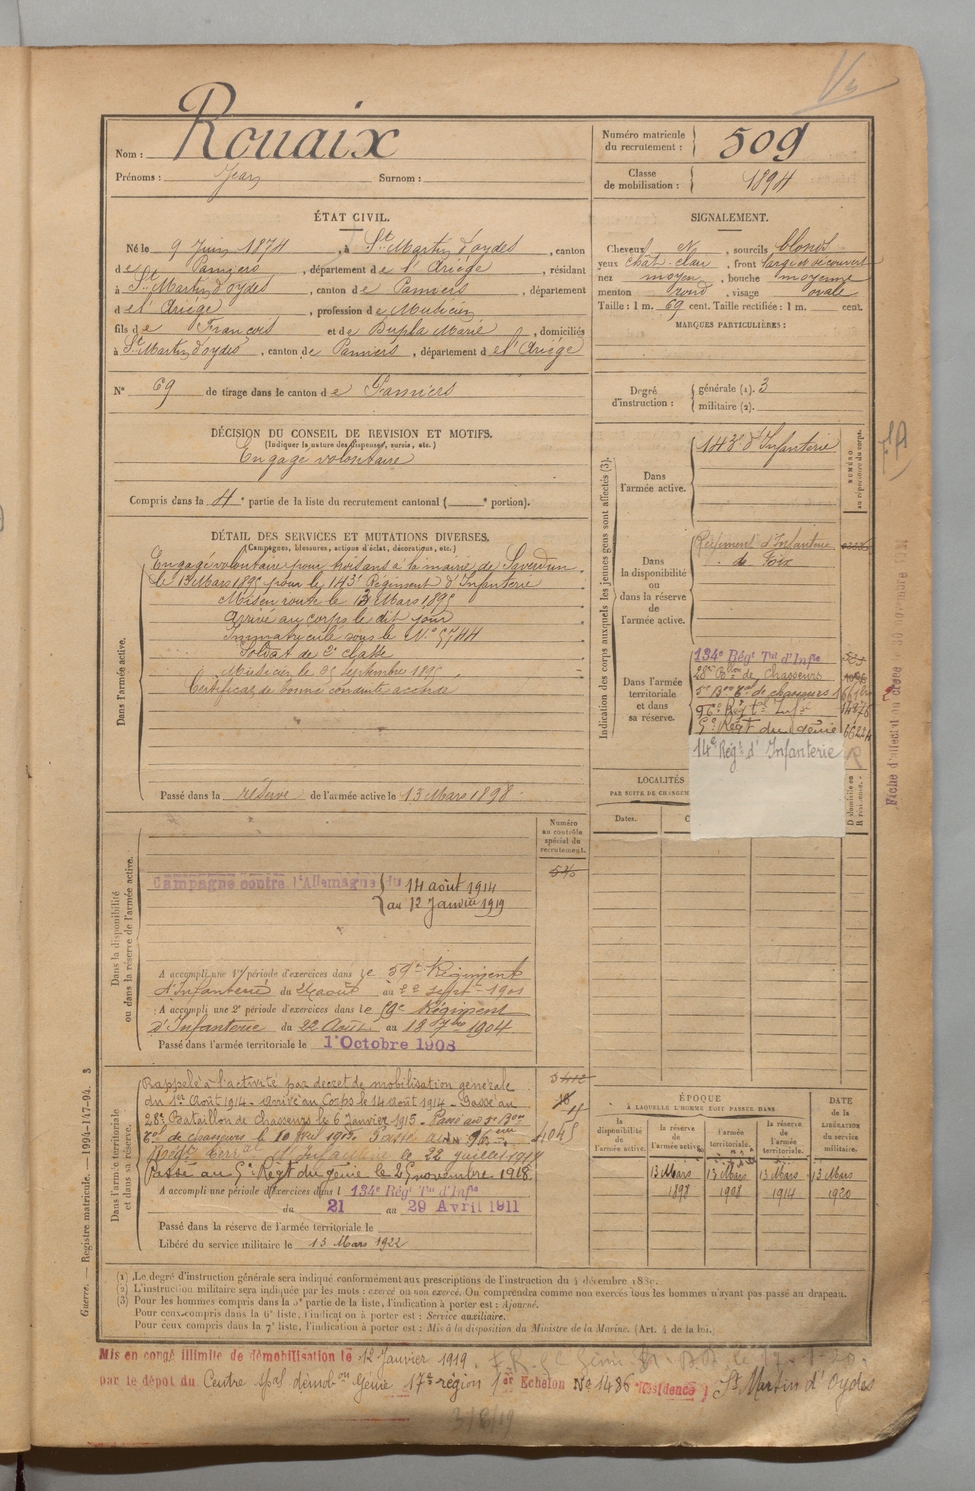 Nom : Rouaix
Prénoms : Jean Surnom :
Numéro matricule du recrutement : 509
Classe de mobilisation : 1894
ÉTAT CIVIL.
Né le 9 Juin 1874, à St Martin d'oydes, canton
de Pamiers, département de l'Ariège, résidant
à St Martin d'oydes, canton de Pamiers, département
de l'Ariège, profession de Musicien
fils de François et de Dupla Marie, domiciliés
à St Martin d'oydes, canton de Pamiers, département de l'Ariège
N° 69 de tirage dans le canton de Pamiers
SIGNALEMENT.
Cheveux, sourcils blonds
yeux chât. clair, front large et découvert
nez moyen, bouche moyenne
menton rond, visage ovale
Taille : 1 m. 69 cent. Taille rectifiée : 1 m. cent.
MARQUES PARTICULIÈRES :
Degré d'instruction : générale (1). 3
militaire (2).
DÉCISION DU CONSEIL DE REVISION ET MOTIFS.
(Indiquer la nature des dispenses, sursis, etc.)
Engagé volontaire
Compris dans la 4e partie de la liste du recrutement cantonal ( e portion).
DÉTAIL DES SERVICES ET MUTATIONS DIVERSES.
(Campagnes, blessures, actions d'éclat, décorations, etc.)
Dans l'armée active.
Engagé volontaire pour trois ans à la mairie de Saverdun
le 13 Mars 1895 pour le 143e Régiment d'Infanterie
Mis en route le 13 Mars 1895
Arrivé au corps le dit jour
Immatriculé sous le N° 5744
Soldat de 2e classe
Musicien le 25 Septembre 1895
Certificat de bonne conduite accordé
Passé dans la réserve de l'armée active le 13 Mars 1898
Indication des corps auxquels les jeunes gens sont affectés (3).
NUMÉRO au répertoire du corps.
Dans l'armée active.
143e d'Infanterie
Dans la disponibilité ou dans la réserve de l'armée active.
Régiment d'Infanterie
de Foix
Dans l'armée territoriale et dans sa réserve.
134e Régt Tal d'Infie
28e Bllon de Chasseurs
5e Bon Tal de chasseurs
96e Régt tal Infie
5e Régt du Génie
14e Régt d'Infanterie
LOCALITÉS
PAR SUITE DE CHANGEM
Dates.
Fiche d'affectat
Dans la disponibilité ou dans la réserve de l'armée active.
Numéro au contrôle spécial du recrutement.
Campagne contre l'Allemagne du 14 août 1914
au 12 Janvier 1919
A accompli une 1re période d'exercices dans le 59e Régiment
d'Infanterie du 26 août au 22 Sept. 1901
A accompli une 2e période d'exercices dans le 59e Régiment
d'Infanterie du 22 Août au 18 7bre 1904
Passé dans l'armée territoriale le 1er Octobre 1908
Dans l'armée territoriale et dans sa réserve.
Rappelé à l'activité par décret de mobilisation générale
du 1er Août 1914 - arrivé au Corps le 14 août 1914 - Passé au
28e Bataillon de Chasseurs le 6 Janvier 1915 - Passé au 5e Bon
Tal de chasseurs le 10 1915. Passé au 96eme
Régt Terral d'Infanterie le 22 juillet 191
Passé au 5e Régt du génie le 25 novembre 1918.
A accompli une période d'exercices dans l 134e Régt Tal d'Infie
du 21 au 29 Avril 1911
Passé dans la réserve de l'armée territoriale le
Libéré du service militaire le 13 Mars 1922
ÉPOQUE
À LAQUELLE L'HOMME DOIT PASSER DANS
DATE de la LIBÉRATION du service militaire.
la disponibilité de l'armée active.
la réserve de l'armée active.
l'armée territoriale.
la réserve de l'armée territoriale.
13 Mars 13 Mars 13 Mars 13 Mars
1898 1908 1914 1920
(1) Le degré d'instruction générale sera indiqué conformément aux prescriptions de l'instruction du 4 décembre 1889.
(2) L'instruction militaire sera indiquée par les mots : exercé ou non exercé. On comprendra comme non exercés tous les hommes n'ayant pas passé au drapeau.
(3) Pour les hommes compris dans la 5e partie de la liste, l'indication à porter est : Ajourné.
Pour ceux compris dans la 6e liste, l'indication à porter est : Service auxiliaire.
Pour ceux compris dans la 7e liste, l'indication à porter est : Mis à la disposition du Ministre de la Marine. (Art. 4 de la loi.)
Guerre. — Registre matricule. — 1994-147-94. 3
Mis en congé illimité de démobilisation le 12 Janvier 1919.
par le dépôt du Centre spal démobon Génie 17e région 1er Echelon N° 1486 Résidence St Martin d'Oydes